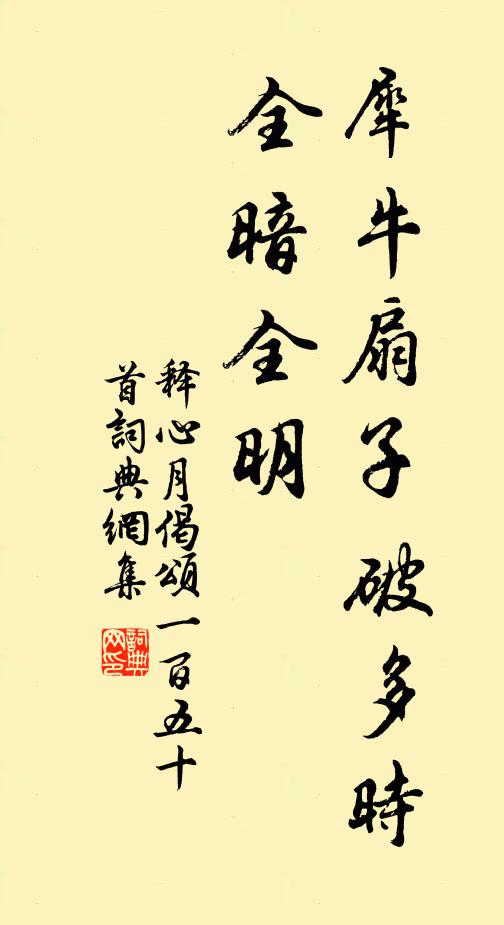 犀牛扇子破多時
全暗全明
释心月偈頌一百五十
首詞典網集
詞典
网印